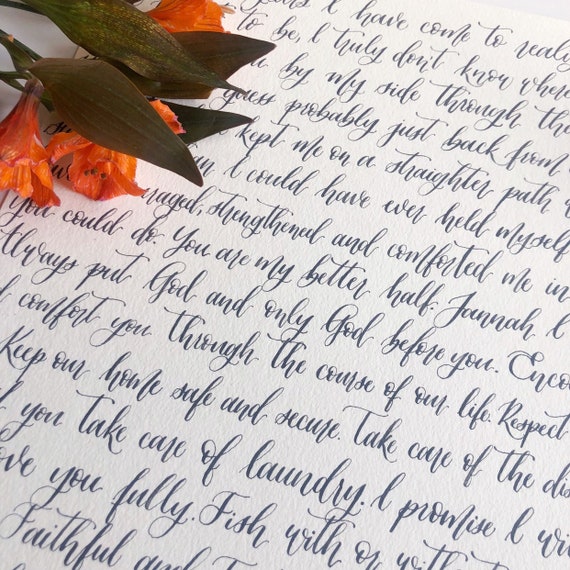 years I have come to realiz
to be, I truly don't know where
by my side through the
guess probably just back from
kept me on a straighter path
I could have ever held myself
raged, strengthened and comforted me in
You could do. You are my better half. Jannah I
Always put God and only God before you. Encou
comfort you through the course of our life. Respect
Keep our home safe and secure. Take care of the dis
if you take care of laundry. I promise I wi
love you fully. Fish with or with
Faithful and